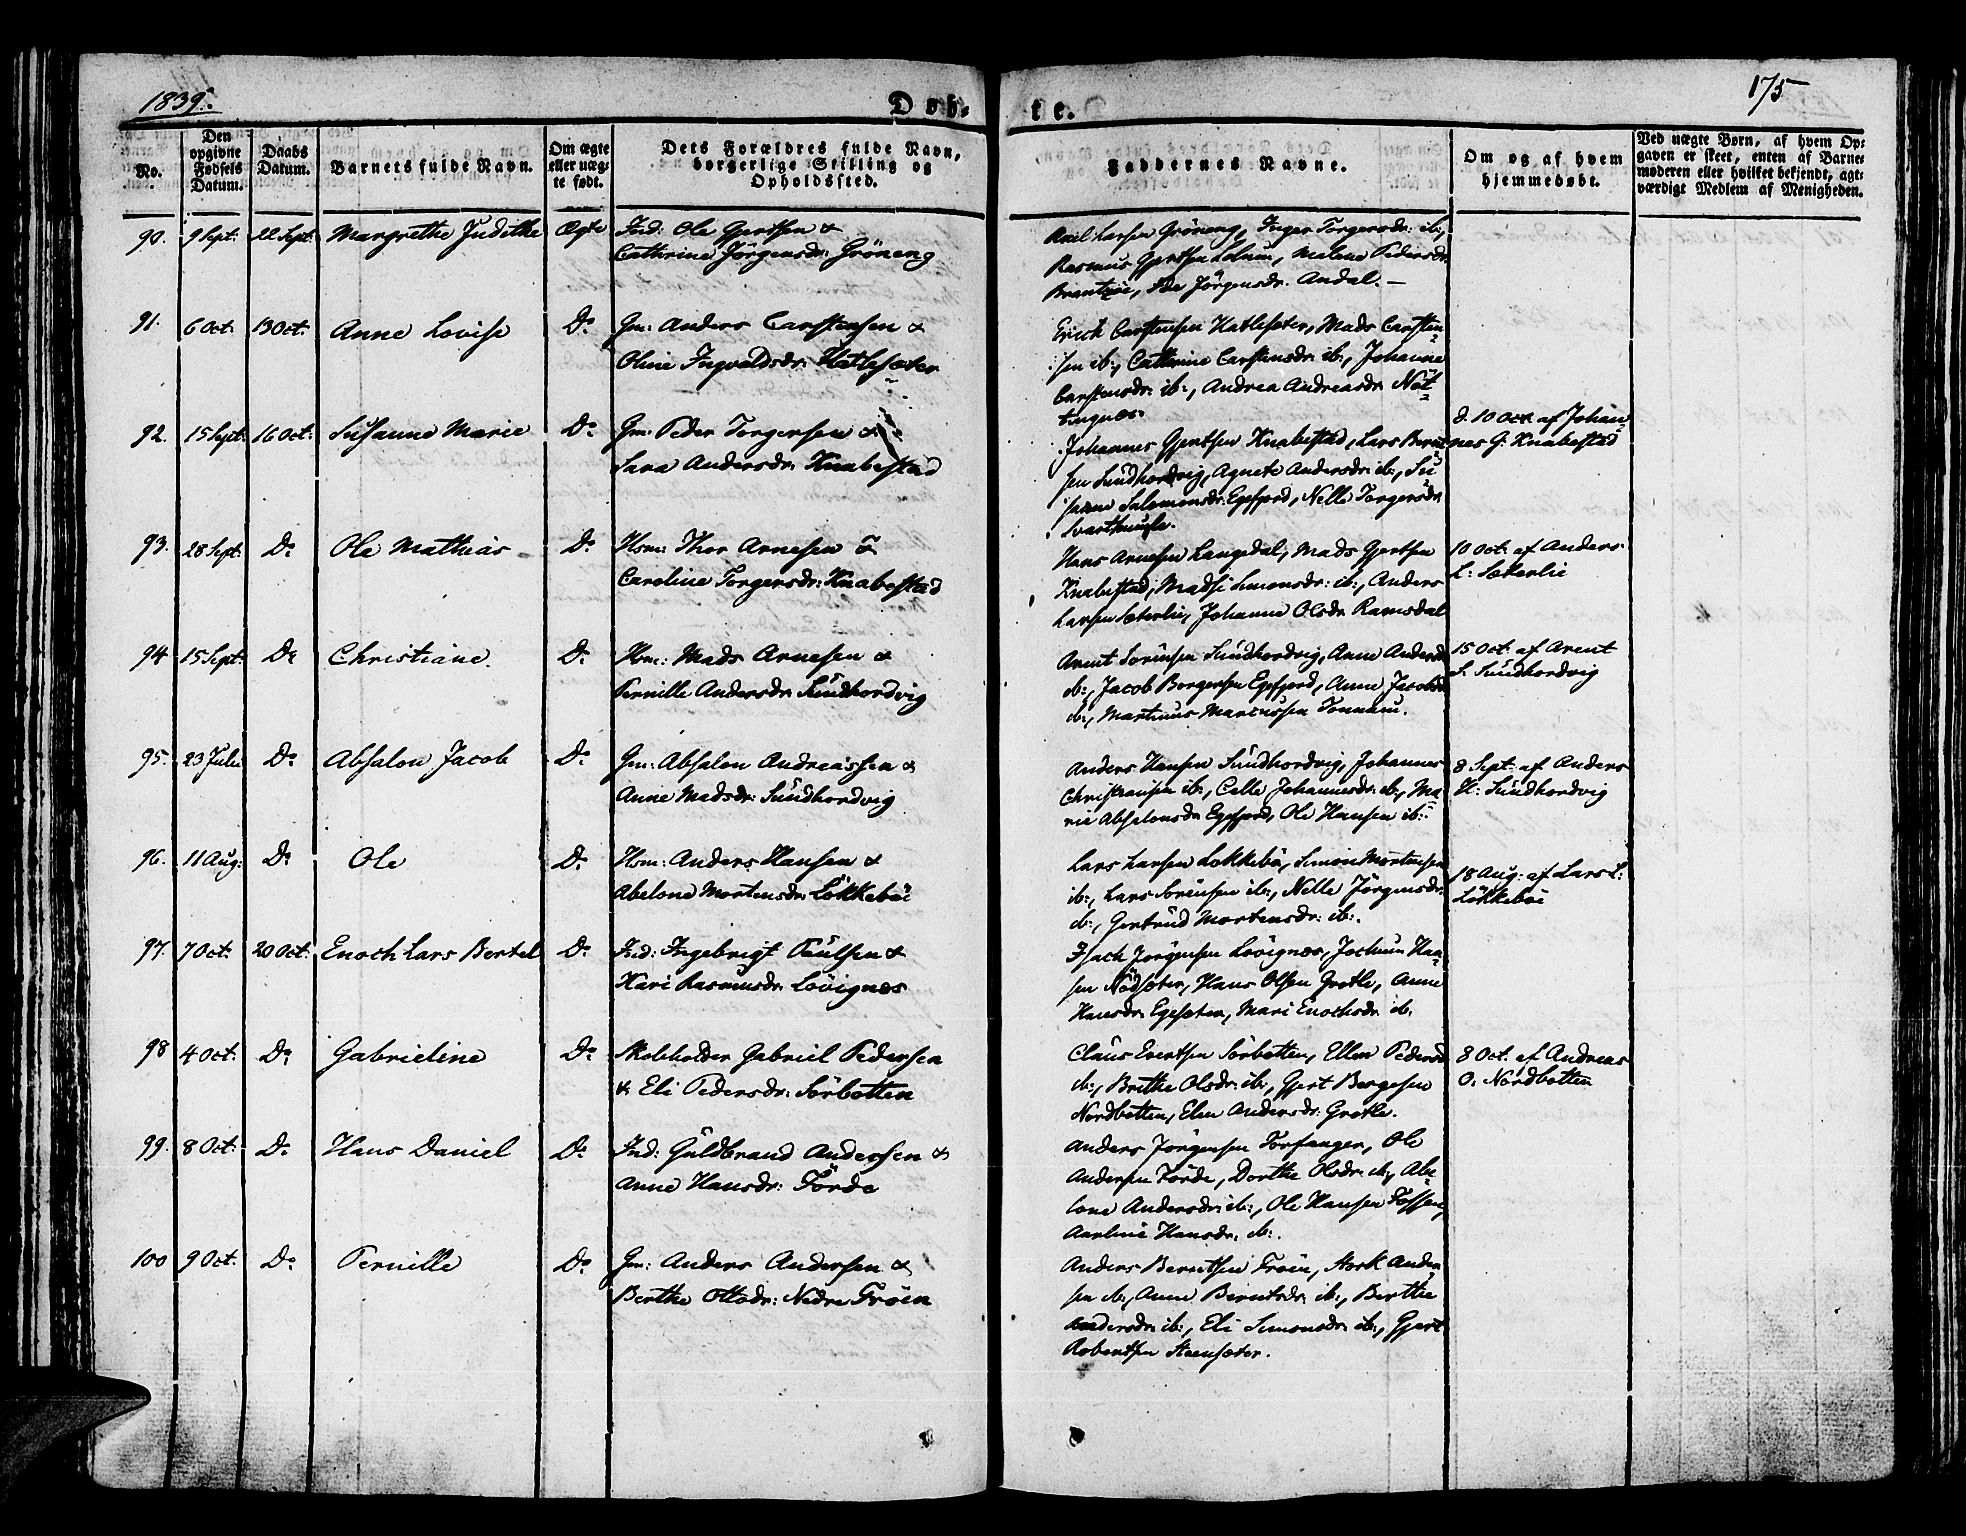 1839.
Døb-
te.
175
No.
Den opgivne Fødsels Datum.
Daabs Datum.
Barnets fulde Navn.
Om ægte eller uægte født.
Dets Forældres fulde Navn, borgerlige Stilling og Opholdssted.
Faddernes Navne.
Om og af hvem hjemmedøbt.
Ved uægte Børn, af hvem Opgaven er skeet, enten af Barnemoderen eller hvilket bekjendt, agtværdigt Medlem af Menigheden.
90. 9 Sept: 22 Sept: Margrethe Judithe Ægte Ind: Ole Gjertsen &
Cathrine Jörgensdr: Gröneng
Axel Larsen Gröneng, Inger Torgersdr: ib:,
Rasmus Gjertsen Lolum, Malene Pedersdr.
Ida Jörgensdr. Andal. —
91. 6 Oct: 13 Oct: Anne Lovise Do. Gm: Anders Carstensen &
Oline Ingvaldsdr: Hatlesæter
Erich Carstensen Hatlesæter, Mads Carsten-
sen ib:, Cathrine Carstensdr: ib:, Johanne
Carstensdr: ib:, Andrea Andreasdr. Nöt-
tingnes.
92. 15 Sept: 16 Oct: Susanne Marie Do. Gm: Peder Torgersen &
Sara Andersdr: Knabestad
Johannes Gjertsen Knabestad, Lars Bernt-
sen Sundhordvig, Agnete Andersdr: ib:, Su-
sanne Salomonsdr: Egefjord, Nelle Torgersdr.
d. 10 Oct. af Johan-
nes G: Knabestad
93. 28 Sept: Do. Ole Mathias Do. Hsm: Thor Arnesen &
Caroline Torgersdr: Knabestad
Hans Arnesen Langedal, Mads Gjertsen
Knabestad, Madsi Simonsdr: ib:, Anders
Larsen Sæterlie, Johanne Olsdr. Ramsdal
10 Oct: af Anders
L: Sæterlie
94 15 Sept: Do Christiane. Do. Hsm: Mads Arnesen &
Pernille Andersdr: Sundhordvig
Arent Sörensen Sundhordvig, Anne Andersdr.
ib:, Jacob Borgersen Egefjord, Anne Jacobsdr.
ib:, Martinus Marcussen Tonnum.
15 Oct: af Arent
S. Sundhordvig
95. 23 Juli Do. Absalon Jacob Do. Gm: Absalon Andreassen &
Anne Madsdr: Sundhordvig
Anders Hansen Sundhordvig, Johannes
Christiansen ib:, Celle Johannesdr: ib:, Ma-
rie Absalonsdr. Egefjord, Ole Hansen ib:
8 Sept: af Anders
H: Sundhordvig
96. 11 Aug: Do. Ole Do. Hsm: Anders Hansen &
Abelone Mortensdr: Lökkeböe
Lars Larsen Lökkebö, Simon Mortensen
ib:, Lars Sörensen ib:, Nelle Jörgensdr:
ib:, Gertrud Mortensdr: ib:.
18 Aug: af Lars L:
Lökkeböe
97. 7 Oct: 20 Oct: Enoch Lars Bertel Do. Ind: Ingebrigt Poulsen &
Kari Rasmusdr. Lövignes
Isach Jörgensen Lövignes, Jochum Han-
sen Nödsæter, Hans Olsen Grotle, Anne
Hansdr. Egesæter, Mari Enochsdr. ib.
98 4 Oct: Do. Gabrieline Do. Skoleholder Gabriel Pedersen
& Eli Pedersdr: Sörbotten
Claus Evertsen Sörbotten, Ellen Pedersdr.
ib:, Brithe Olsdr: ib:, Gjert Børgesen
Nordbotten, Elen Andersdr. Grotle.
8 Oct: af Andreas
O. Nordbotten
99. 8 Oct: Do. Hans Daniel Do. Ind: Guldbrand Andersen &
Anne Hansdr: Förde
Anders Jörgensen Torfanger, Ole
Andersen Förde, Dorthe Olsdr: ib:, Abe-
lone Andersdr: ib:, Ole Hansen Fossen,
Hansdr. ib:.
100 9 Oct: Do. Pernille Do. Gm: Anders Andersen &
Berthe Ottosdr: Nedre Fröen
Anders Berntsen Fröen, Anders-
sen ib:, Anne Berntsdr. ib:, Berthe
Andersdr: ib:, Eli Simonsdr: ib:, Gjert
Robertsen Steensæter.